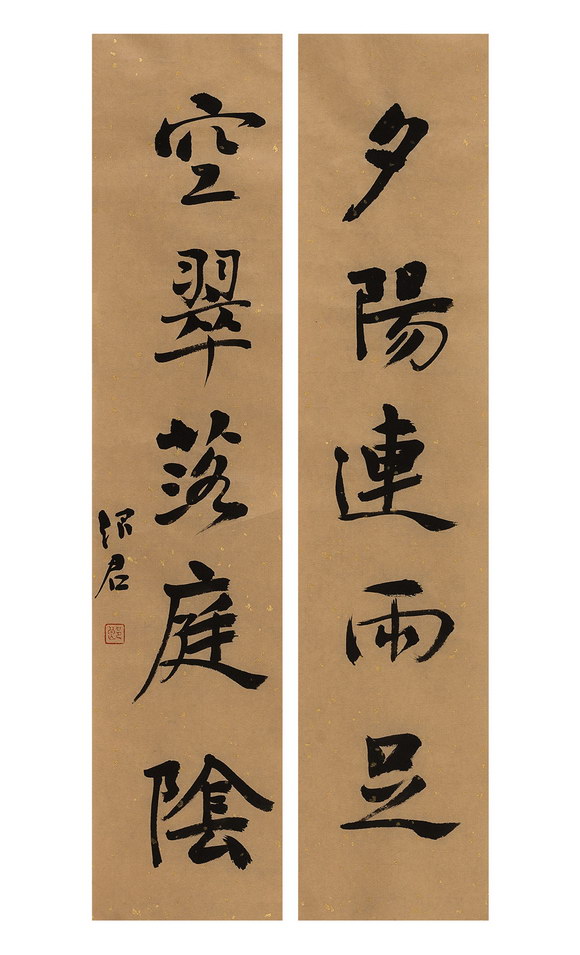 夕陽連雨足
空翠落庭陰
君